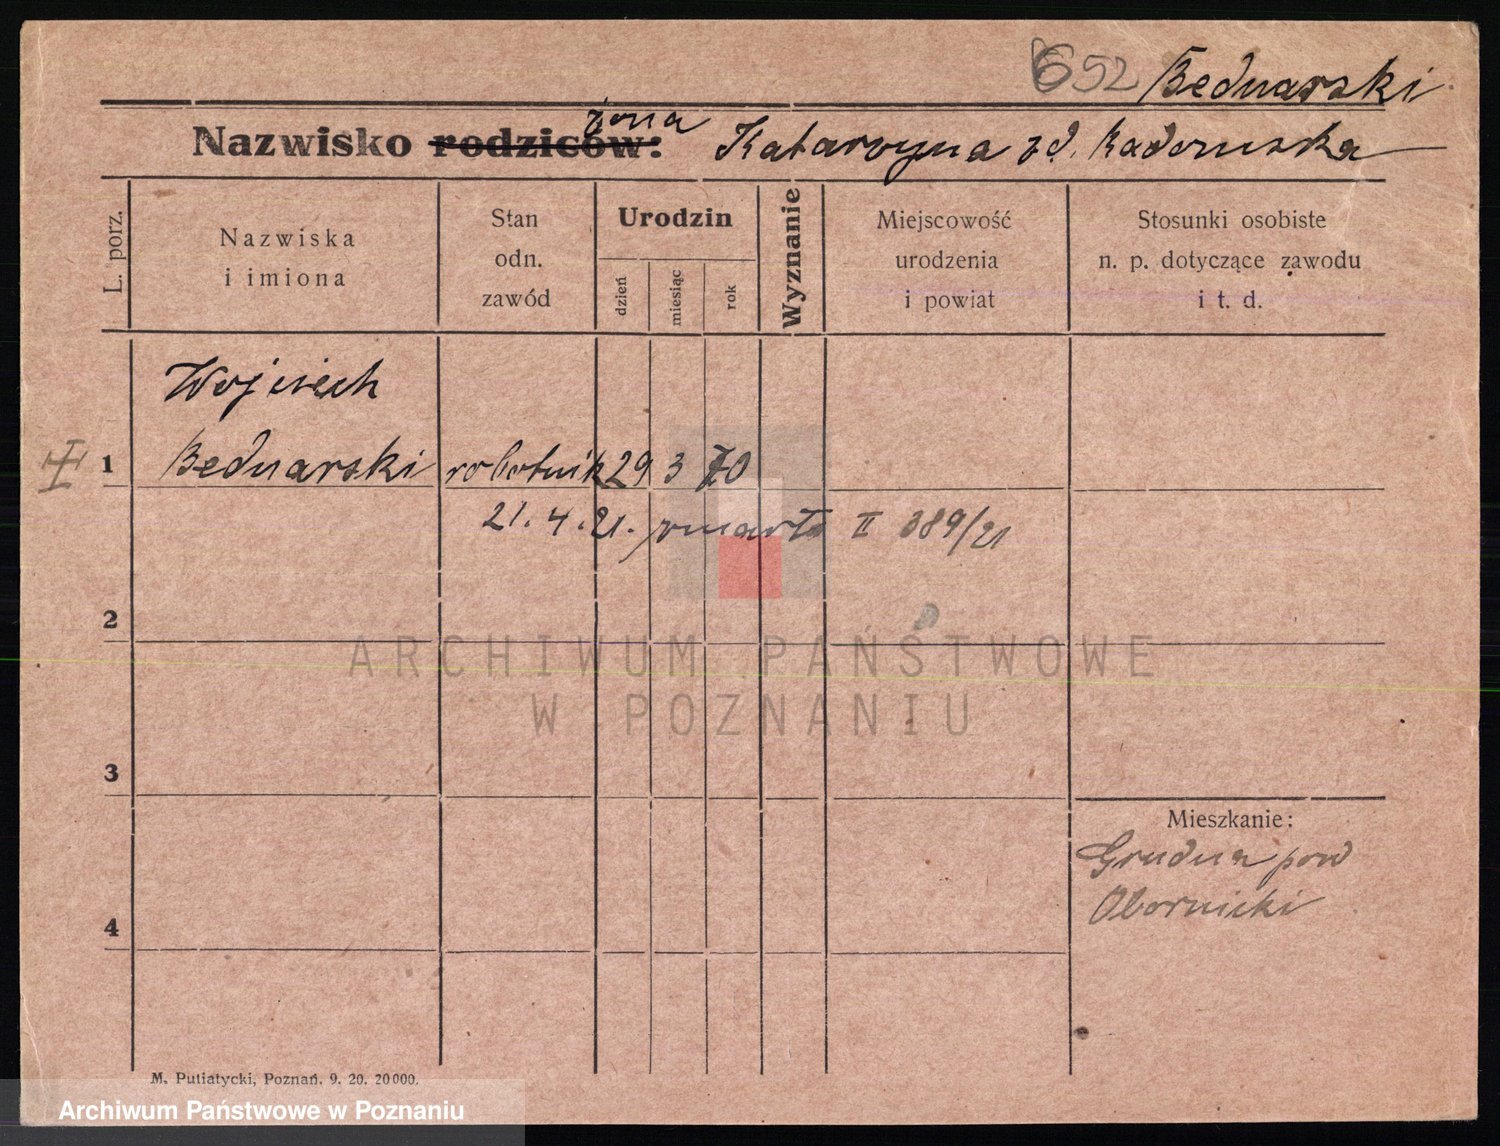 652 Bednarski
żona
Nazwisko rodziców: Katarzyna zd.
L. porz.
Nazwiska
i imiona
Stan
odn.
zawód
Urodzin
dzień
miesiąc
rok
Wyznanie
Miejscowość
urodzenia
i powiat
Stosunki osobiste
n. p. dotyczące zawodu
i t. d.
Wojciech
1 Bednarski robotnik 29 3 70
21. 4. 21. zmarł II 389/21
2
ARCHIWUM PAŃSTWOWE
W POZNANIU
3
Mieszkanie:
Grudna pow
Obornicki
4
M. Putiatycki, Poznań. 9. 20. 20000.
Archiwum Państwowe w Poznaniu